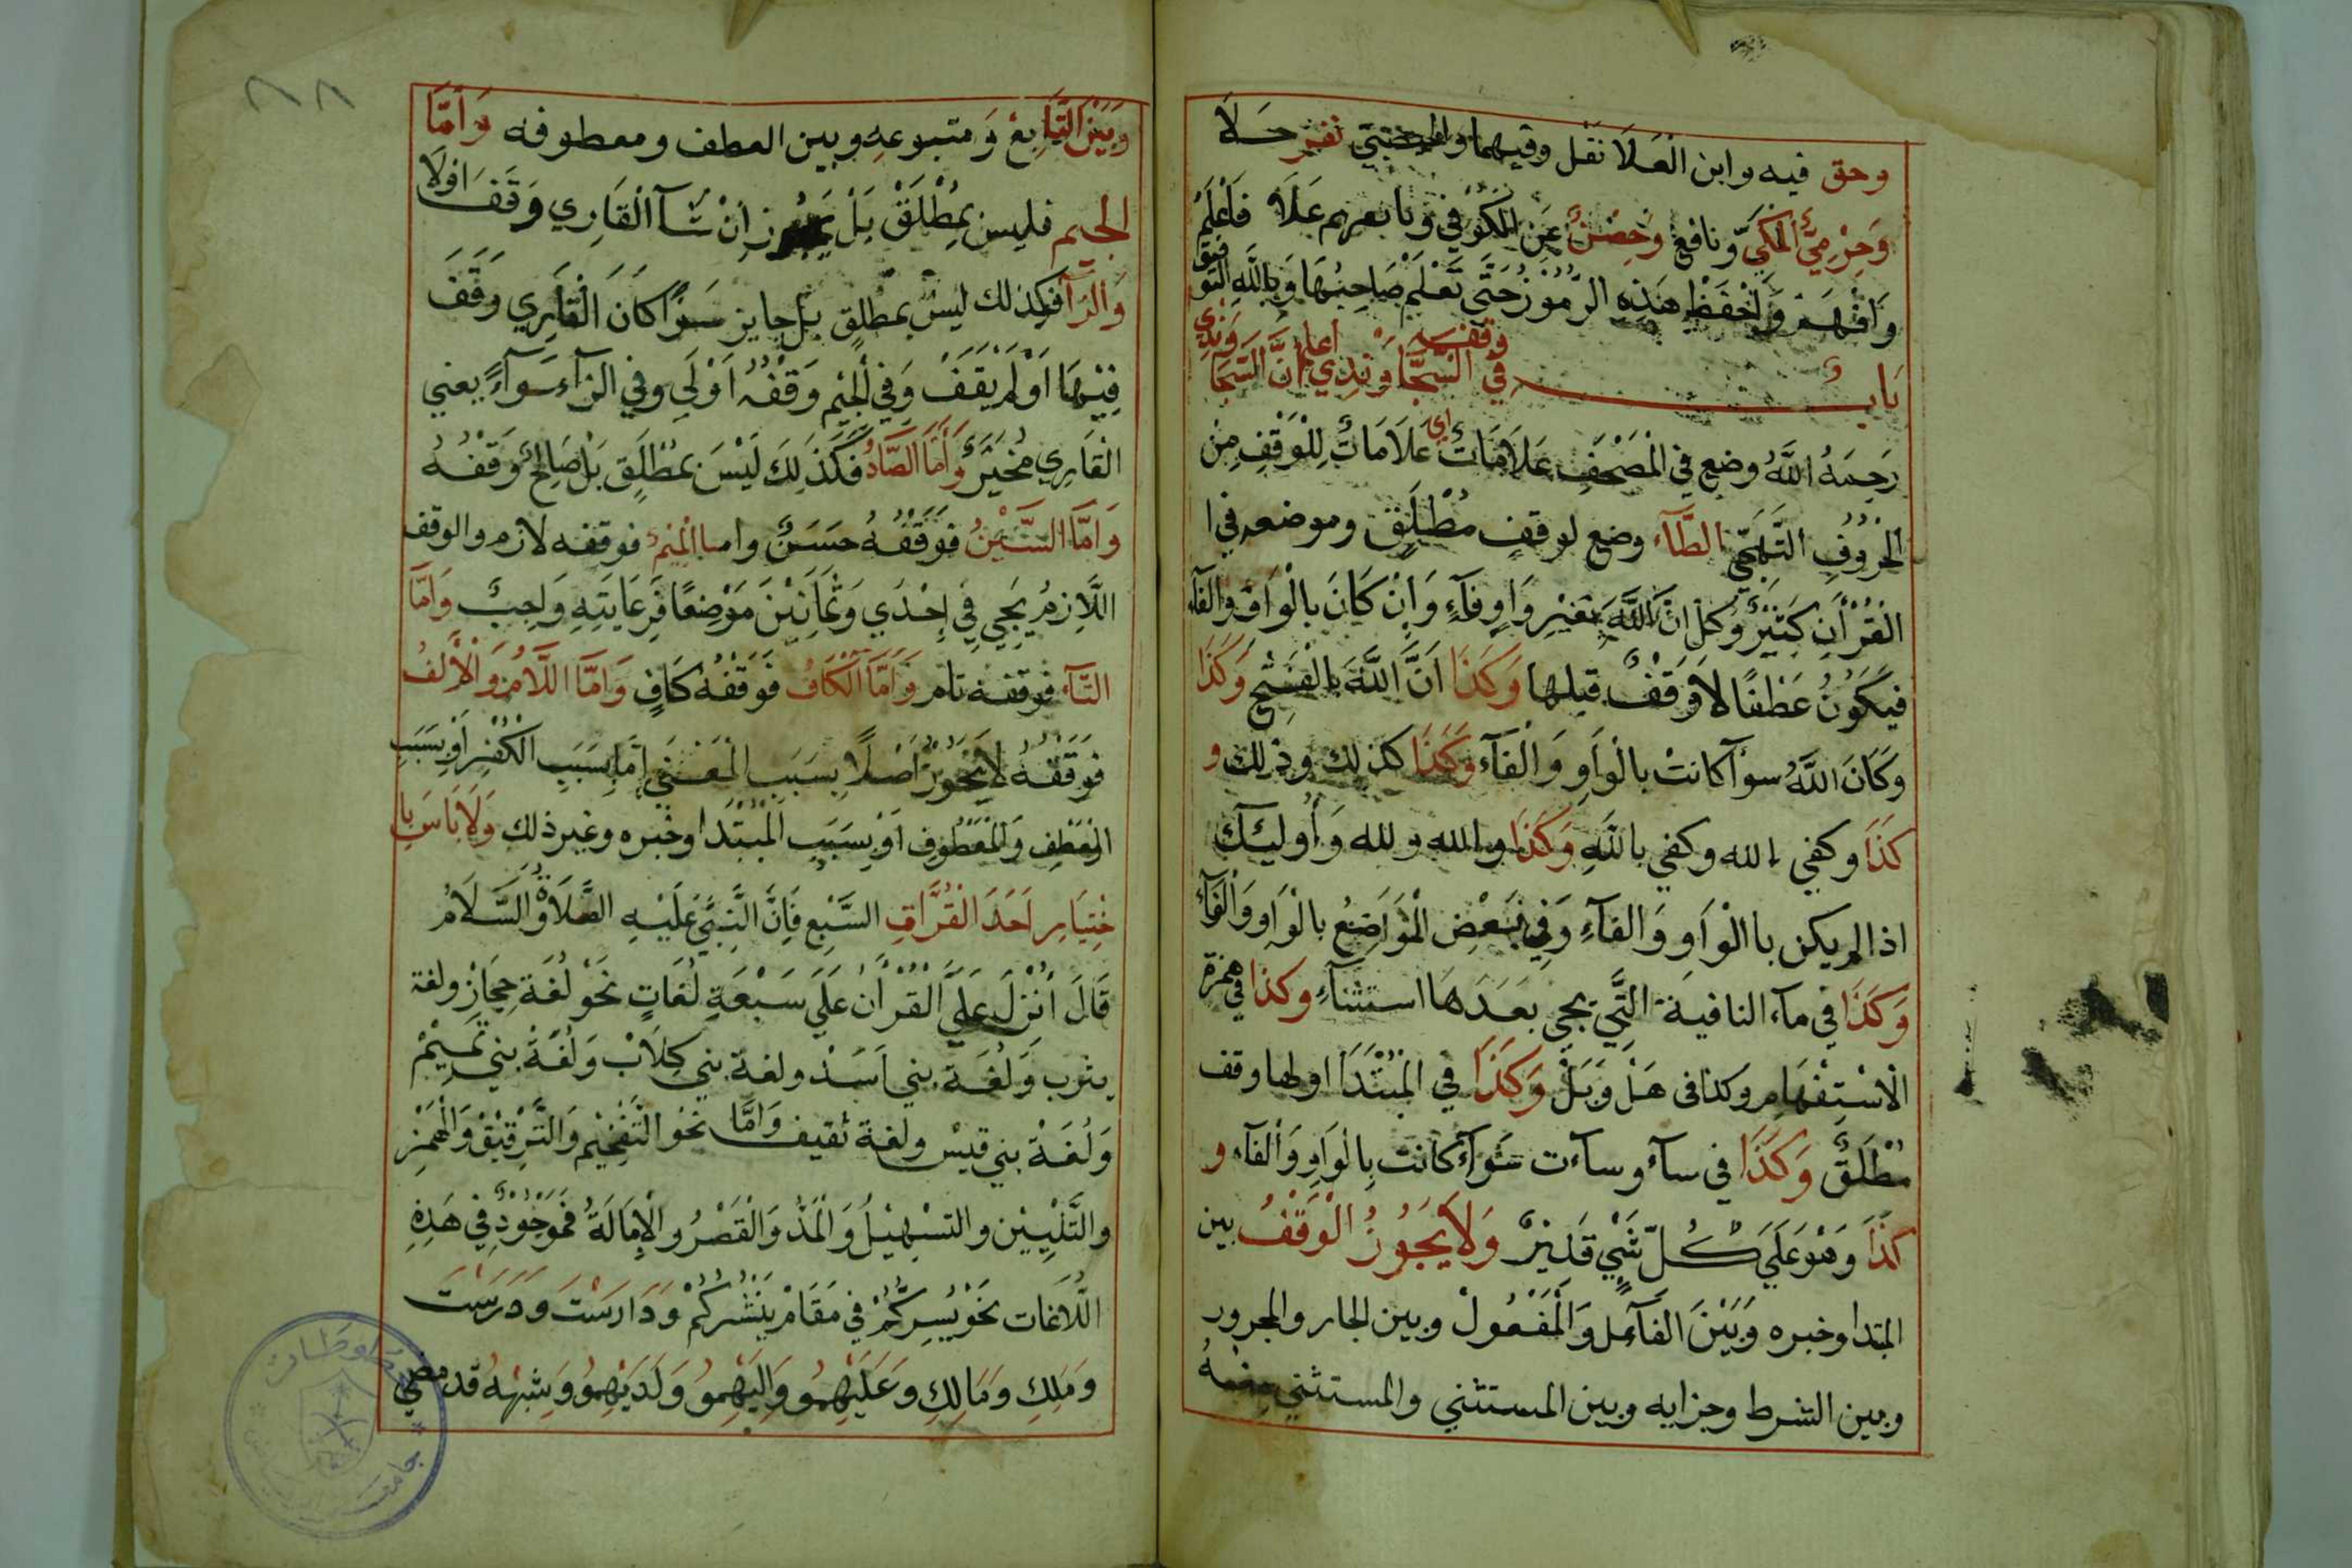 وحق فيه وابن العلا نقل وفيهما واليحصبي نفر حلا
وحرمي المكي ونافع وحصن عن الكوفي ونافعهم علا فاعلم
وافهم واحفظ هذه الرموز حتى تعلم صاحبها وبالله التوفيق
باب في وقف السجاوندي اعلم ان السجاوندي
رحمه الله وضع في المصحف علامات اي علامات للوقف من
الحروف التهجي الطآء وضع لوقف مطلق وموضعه في ا
القرأن كثير وكل ان الله بغير واو وفآء وان كان بالواو والفآء
فيكون عطفا لا وقف قبلها وكذا ان الله بالفتح وكذا
وكان الله سوآ كانت بالواو والفآء وكذا كذلك وذلك و
كذا وكفي الله وكفي بالله وكذا والله ولله وأوليك
اذا لم يكن باالواو والفآء وفي بعض المواضع بالواو والفآء
وكذا في مآء النافية التي يجي بعدها استثنآء وكذا في همزة
الاستفهام وكذا فى هل وبل وكذا في المبتدا اولها وقف
مطلق وكذا في سآء وسآءت سوآء كانت بالواو والفآء و
كذا وهو على كل شي قدير ولا يجوز الوقف بين
المبتدا وخبره وبين الفآعل والمفعول وبين الجار والمجرور
وبين الشرط وجزايه وبين المستثني والمستثني منه
وبين التابع ومتبوعه وبين العطف ومعطوفه واما
الجيم فليس بمطلق بل يجوز ان شآ القاري وقف اولا
والزآ فكذلك ليس بمطلق بل جايز سوآ كان القاري وقف
فيها او لم يقف وفي الجيم وقفه اولي وفي الزآء سوآء يعني
القاري مخير واما الصاد فكذلك ليس بمطلق بل صالح وقفه
واما السين فوقفه حسن واما الميم فوقفه لازم والوقف
اللازم يجي في إحدي وثمانين موضعا فرعايته واجب واما
التآء فوقفه تام واما الكاف فوقفه كاف واما اللام والألف
فوقفه لا يجوز اصلا بسبب المعني اما بسبب الكفر او بسبب
العطف والمعطوف او بسبب المبتدا وخبره وغير ذلك ولا باس با
ختيار احد القراف السبع فان النبي عليه الصلاة والسلام
قال أنزل علي القرأن علي سبعة لغات نحو لغة حجاز ولغة
يثرب ولغة بني اسد ولغة بني كلاب ولغة بني تميم
ولغة بني قيس ولغة ثقيف واما نحو التفخيم والترقيق والهمز
والتليين والتسهيل والمد والقصر والإمالة فموجود في هذه
اللاغات نحو يسركم في مقام ينشركم ودارست ودرست
وملك ومالك وعليهمو واليهمو ولديهمو وشبهه قد مضي
٨٨